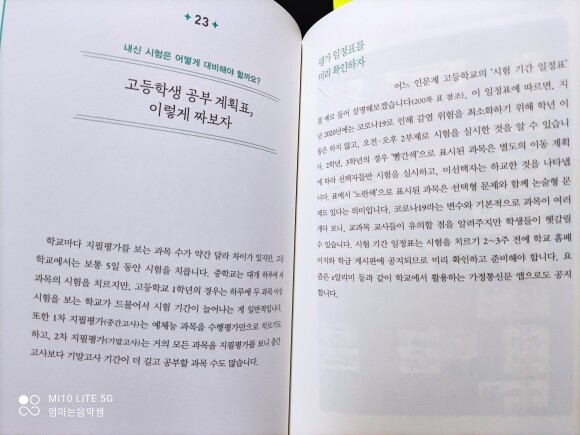 23
내신 시험은 어떻게 대비해야 할까요?
고등학생 공부 계획표,
이렇게 짜보자
학교마다 지필평가를 보는 과목 수가 약간 달라 차이가 있지만, 고등
학교에서는 보통 5일 동안 시험을 치릅니다. 중학교는 대개 하루에 세
과목의 시험을 치르지만, 고등학교 1학년의 경우는 하루에 두 과목 이상
시험을 보는 학교가 드물어서 시험 기간이 늘어나는 게 일반적입니다.
또한 1차 지필평가(중간고사)는 예체능 과목을 수행평가만으로 치르기도
하고, 2차 지필평가(기말고사)는 거의 모든 과목을 지필평가를 보니 중간
고사보다 기말고사 기간이 더 길고 공부할 과목 수도 많습니다.
평가 일정표를
미리 확인하자
어느 인문계 고등학교의 '시험 기간 일정표'
를 예로 들어 설명해보겠습니다(200쪽 표 참조). 이 일정표에 따르면, 지
난 2020년에는 코로나19로 인해 감염 위험을 최소화하기 위해 학년 이
동은 하지 않고, 오전·오후 2부제로 시험을 실시한 것을 알 수 있습니
다. 2학년, 3학년의 경우 '빨간색'으로 표시된 과목은 별도의 이동 계획
에 따라 선택자들만 시험을 실시하고, 미선택자는 하교한 것을 나타냅
니다. 표에서 '노란색'으로 표시된 과목은 선택형 문제와 함께 논술형 문
제도 있다는 의미입니다. 코로나19라는 변수와 기본적으로 과목이 여러
개다 보니, 교과목 교사들이 유의할 점을 알려주지만 학생들이 헷갈릴
수 있습니다. 시험 기간 일정표는 시험을 치르기 2~3주 전에 학교 홈페
이지와 학급 게시판에 공지되므로 미리 확인하고 준비해야 합니다. 요
즘은 e알리미 등과 같이 학교에서 활용하는 가정통신문 앱으로도 공지
합니다.
MI10 LITE 5G
엄마는음악샘